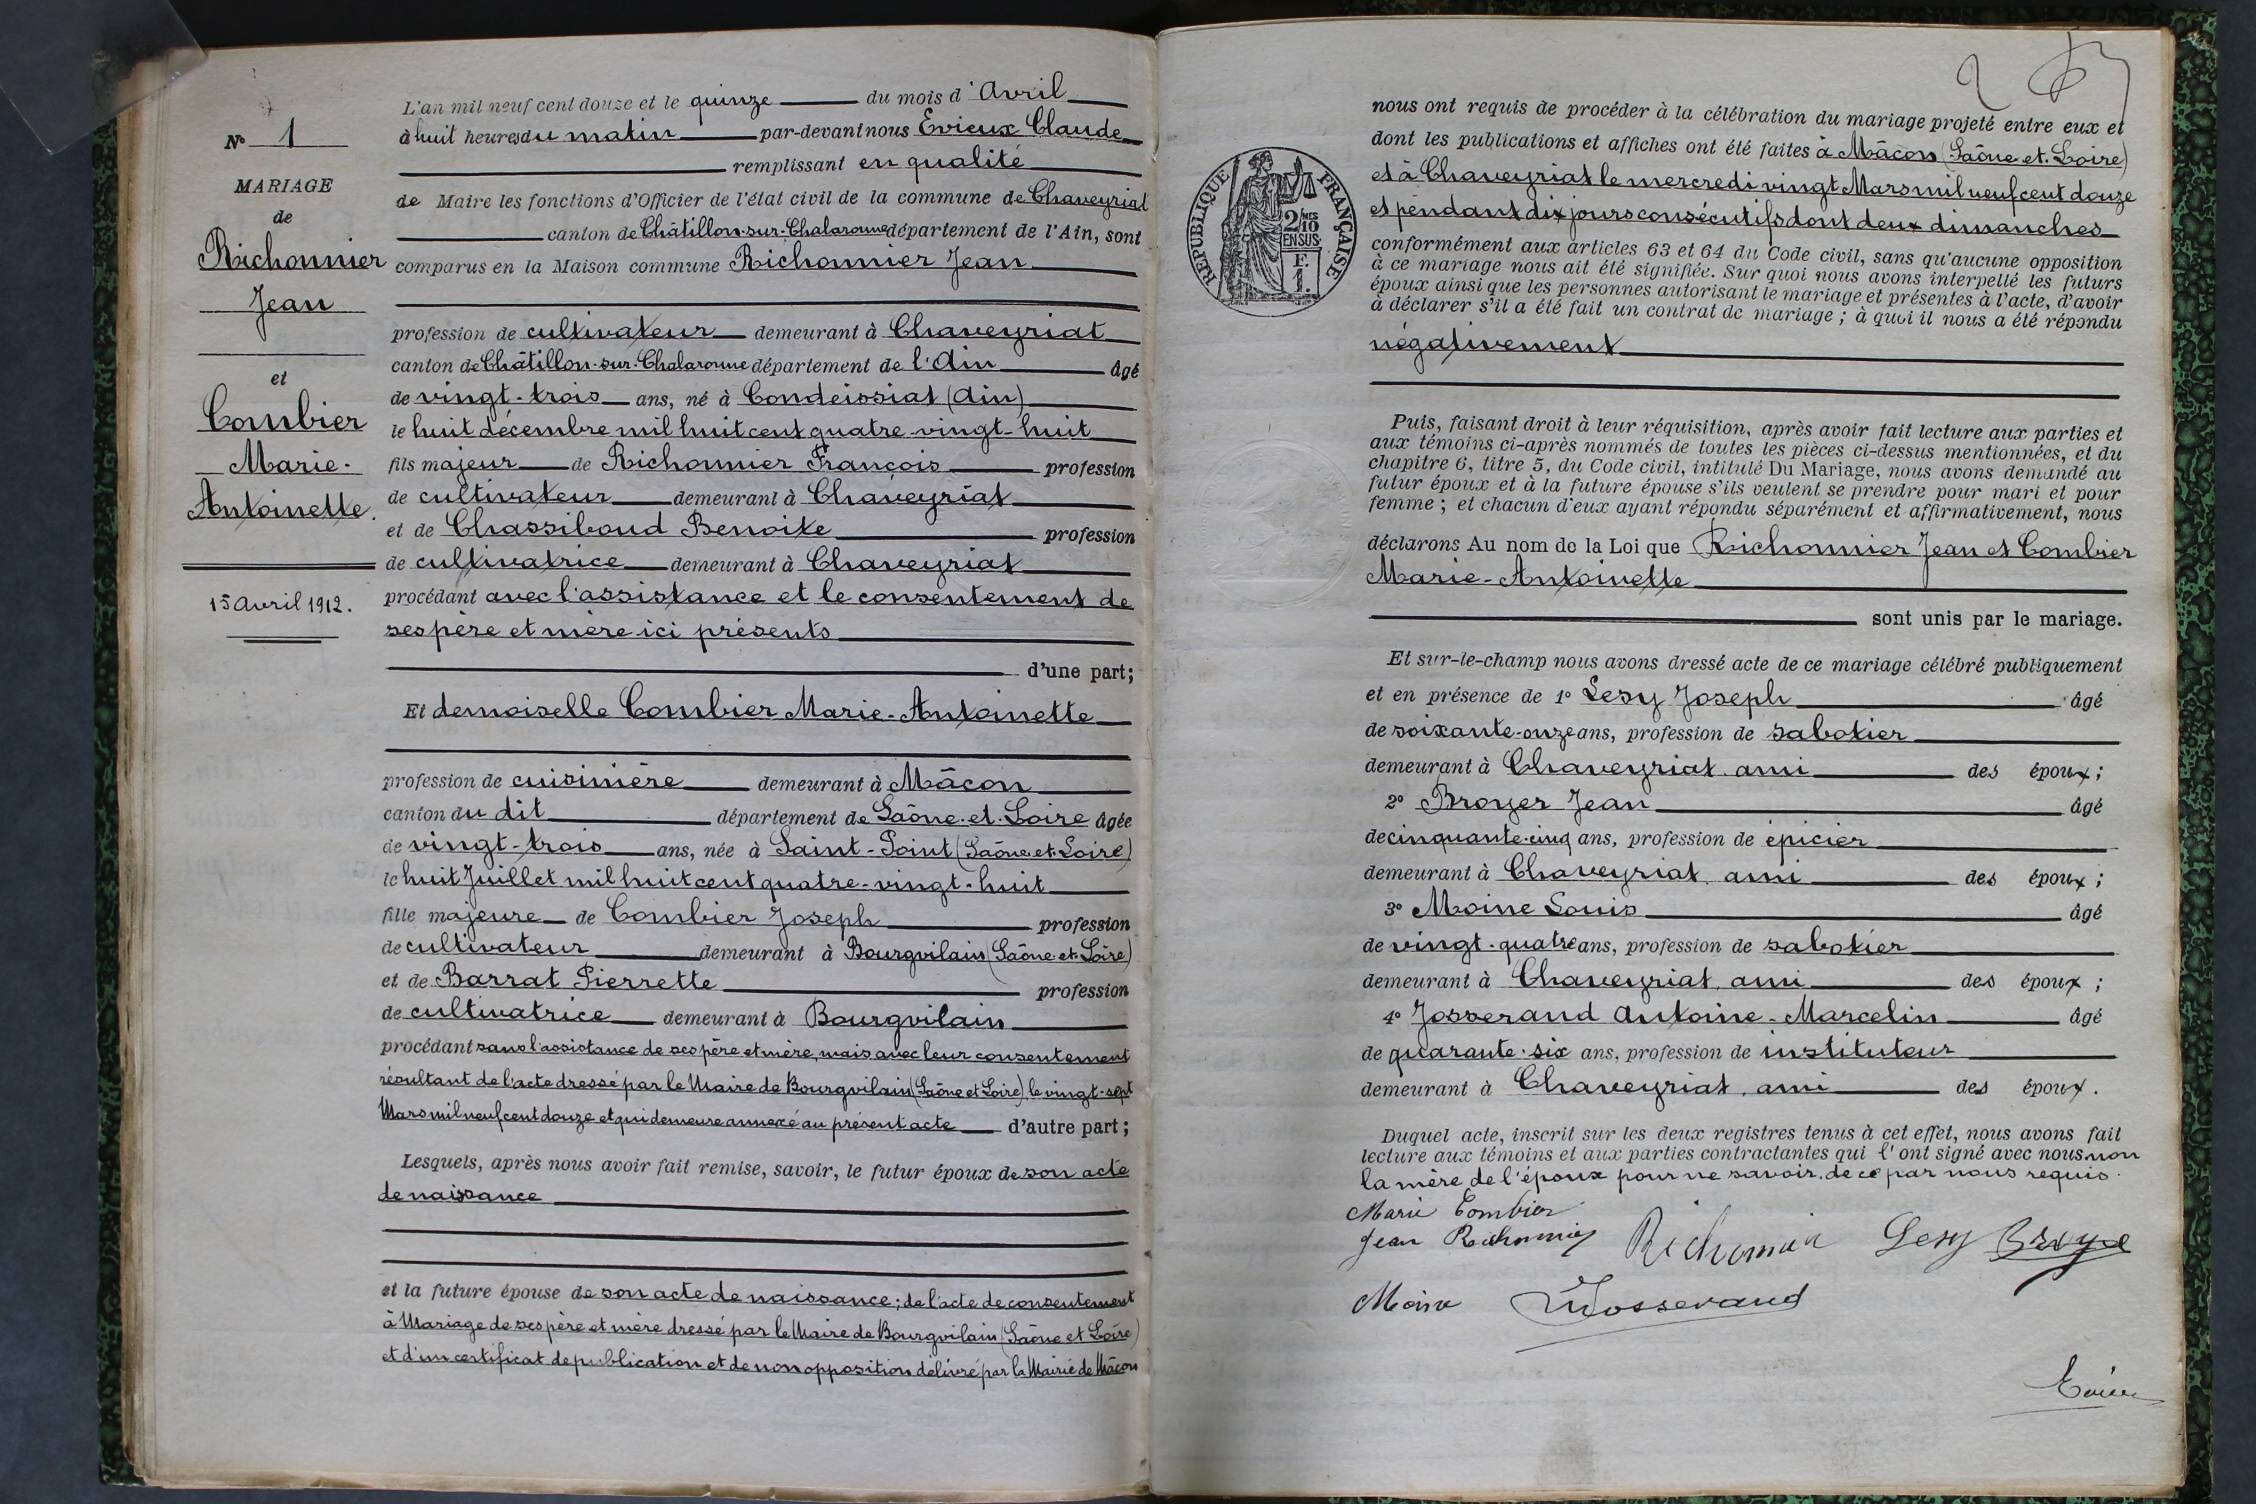 N° 1
MARIAGE
de
Richonnier
Jean
et
Combier
Marie-
Antoinette.
15 Avril 1912.
L'an mil neuf cent douze et le quinze du mois d'Avril
à huit heures du matin par-devant nous Evieux Claude
remplissant en qualité
de Maire les fonctions d'Officier de l'état civil de la commune de Chaveyriat
canton de Châtillon-sur-Chalaronne département de l'Ain, sont
comparus en la Maison commune Richonnier Jean
profession de cultivateur demeurant à Chaveyriat
canton de Châtillon-sur-Chalaronne département de l'Ain âgé
de vingt-trois ans, né à Condeissiat (Ain)
le huit décembre mil huit cent quatre-vingt-huit
fils majeur de Richonnier François profession
de cultivateur demeurant à Chaveyriat
et de Chassiboud Benoite profession
de cultivatrice demeurant à Chaveyriat
procédant avec l'assistance et le consentement de
ses père et mère ici présents
d'une part;
Et demoiselle Combier Marie-Antoinette
profession de cuisinière demeurant à Mâcon
canton du dit département de Saône-et-Loire âgée
de vingt-trois ans, née à Saint-Point (Saône-et-Loire)
le huit Juillet mil huit cent quatre-vingt-huit
fille majeure de Combier Joseph profession
de cultivateur demeurant à Bourgvilain (Saône-et-Loire)
et de Barrat Pierrette profession
de cultivatrice demeurant à Bourgvilain
procédant sans l'assistance de ses père et mère, mais avec leur consentement
résultant de l'acte dressé par le Maire de Bourgvilain (Saône et Loire) le vingt-sept
Mars mil neuf cent douze et qui demeure annexé au présent acte d'autre part;
Lesquels, après nous avoir fait remise, savoir, le futur époux de son acte
de naissance
et la future épouse de son acte de naissance; de l'acte de consentement
à Mariage de ses père et mère dressé par le Maire de Bourgvilain (Saône et Loire)
et d'un certificat de publication et de non opposition délivré par la Mairie de Mâcon
2
RÉPUBLIQUE FRANÇAISE
2/10
EN SUS
F.
1.
nous ont requis de procéder à la célébration du mariage projeté entre eux et
dont les publications et affiches ont été faites à Mâcon (Saône-et-Loire)
et à Chaveyriat le mercredi vingt Mars mil neuf cent douze
et pendant dix jours consécutifs dont deux dimanches
conformément aux articles 63 et 64 du Code civil, sans qu'aucune opposition
à ce mariage nous ait été signifiée. Sur quoi nous avons interpellé les futurs
époux ainsi que les personnes autorisant le mariage et présentes à l'acte, d'avoir
à déclarer s'il a été fait un contrat de mariage; à quoi il nous a été répondu
négativement
Puis, faisant droit à leur réquisition, après avoir fait lecture aux parties et
aux témoins ci-après nommés de toutes les pièces ci-dessus mentionnées, et du
chapitre 6, titre 5, du Code civil, intitulé Du Mariage, nous avons demandé au
futur époux et à la future épouse s'ils veulent se prendre pour mari et pour
femme; et chacun d'eux ayant répondu séparément et affirmativement, nous
déclarons Au nom de la Loi que Richonnier Jean et Combier
Marie-Antoinette
sont unis par le mariage.
Et sur-le-champ nous avons dressé acte de ce mariage célébré publiquement
et en présence de 1° Lesy Joseph âgé
de soixante-onze ans, profession de sabotier
demeurant à Chaveyriat, ami des époux;
2° Broyer Jean âgé
de cinquante-cinq ans, profession de épicier
demeurant à Chaveyriat, ami des époux;
3° Moine Louis âgé
de vingt-quatre ans, profession de sabotier
demeurant à Chaveyriat, ami des époux;
4° Josserand Antoine-Marcelin âgé
de quarante-six ans, profession de instituteur
demeurant à Chaveyriat, ami des époux.
Duquel acte, inscrit sur les deux registres tenus à cet effet, nous avons fait
lecture aux témoins et aux parties contractantes qui l'ont signé avec nous, non
la mère de l'époux pour ne savoir, de ce par nous requis.
Marie Combier
Jean Richonnier Richonnier Lesy Broyer
Moine Josserand
Evieux